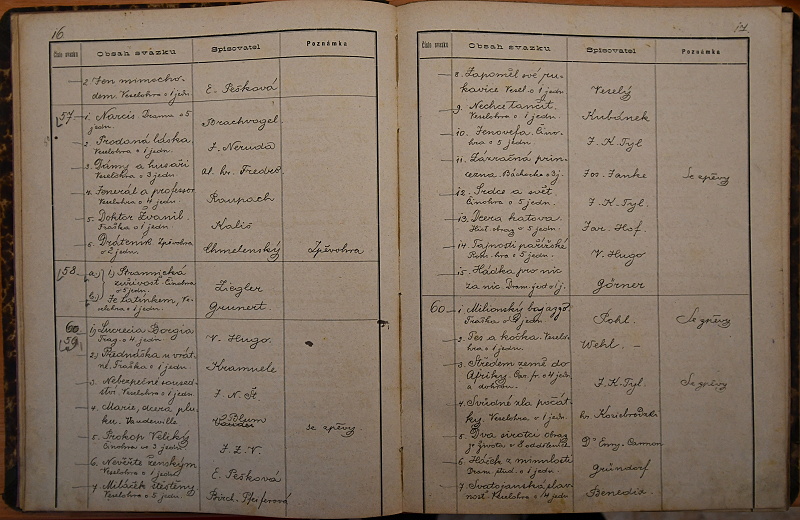 16
Číslo svazku Obsah svazku Spisovatel Poznámka
2. Jen mimocho-
dem. Veselohra o 1 jedn. E. Pešková
57 1. Narcis. Drama o 5
jedn. Brachvogel
2. Prodaná láska.
Veselohra o 1 jedn. J. Neruda
3. Dámy a husaři
Veselohra o 3 jedn. Al. hr. Fredro
4. Jenerál a professor
Veselohra o 4 jedn. Raupach
5. Doktor Žvanil.
Fraška o 1 jedn. Kališ
6. Dráteník. Zpěvohra
o 2 jedn. Chmelenský Zpěvohra
58 a) 1) Strannická
zuřivost. Činohra
o 5 jedn. Ziegler
b.) Je Latinkem, Ve-
selohra o 1 jedn. Grunert.
60
59 1) Lucrecia Borgia
Trag. o 4 jedn. V. Hugo.
2) Přednáška u vrát-
né. Fraška o 1 jedn. Kramuele
3. Nebezpečné soused-
ství. Veselohra o 1 jedn. J. N. Št.
4. Marie, dcera plu-
ku. Vaudeville Blum se zpěvy
5. Prokop Veliký
Činohra o 3 jedn. J. Z. V.
6. Nevěřte ženským
Veselohra o 1 jedn. E. Pešková
7. Miláček štěstěny.
Veselohra o 5 jedn. Birch. Pfeiferová
17
Číslo svazku Obsah svazku Spisovatel Poznámka
8. Zapoměl své ru-
kavice Vesel. o 1 jedn. Veselý
9. Nechce tančit.
Veselohra o 1 jedn. Kubánek
10. Jenovefa. Čino-
hra o 5 jedn. J. K. Tyl
11. Zázračná prin-
cezna. Báchorka o 3 j. Jos. Janke Se zpěvy
12. Srdce a svět.
Činohra o 5 jedn. J. K. Tyl.
13. Dcera katova.
Hist. obraz o 5 jedn. Jar. Hof.
14. Tajnosti pařížské
o 5 jedn. V. Hugo
15. Hádka pro nic
za nic. Dram. žert o 1 j. Görner
60 1. Milionský bajazzo
Fraška o jedn Pohl. Se zpěvy
2. Pes a kočka. Veselo-
hra o 1 jedn. Wehl. –
3. Středem země do
Afriky. o 4 jedn.
a dohrou. J. K. Tyl. Se zpěvy
4. Svízdné zla počát-
ky. Veselohra o 1 jedn. hr. Koziebrodzki
5. Dva sirotci obraz
ze života v 8 odděleních Dº Enny. Carmon
6. Háček z minulosti
Dram. žert. o 1 jedn. Gründorf
7. Svatojanská slav-
nost. Veselohra o 4 jedn Benedix.